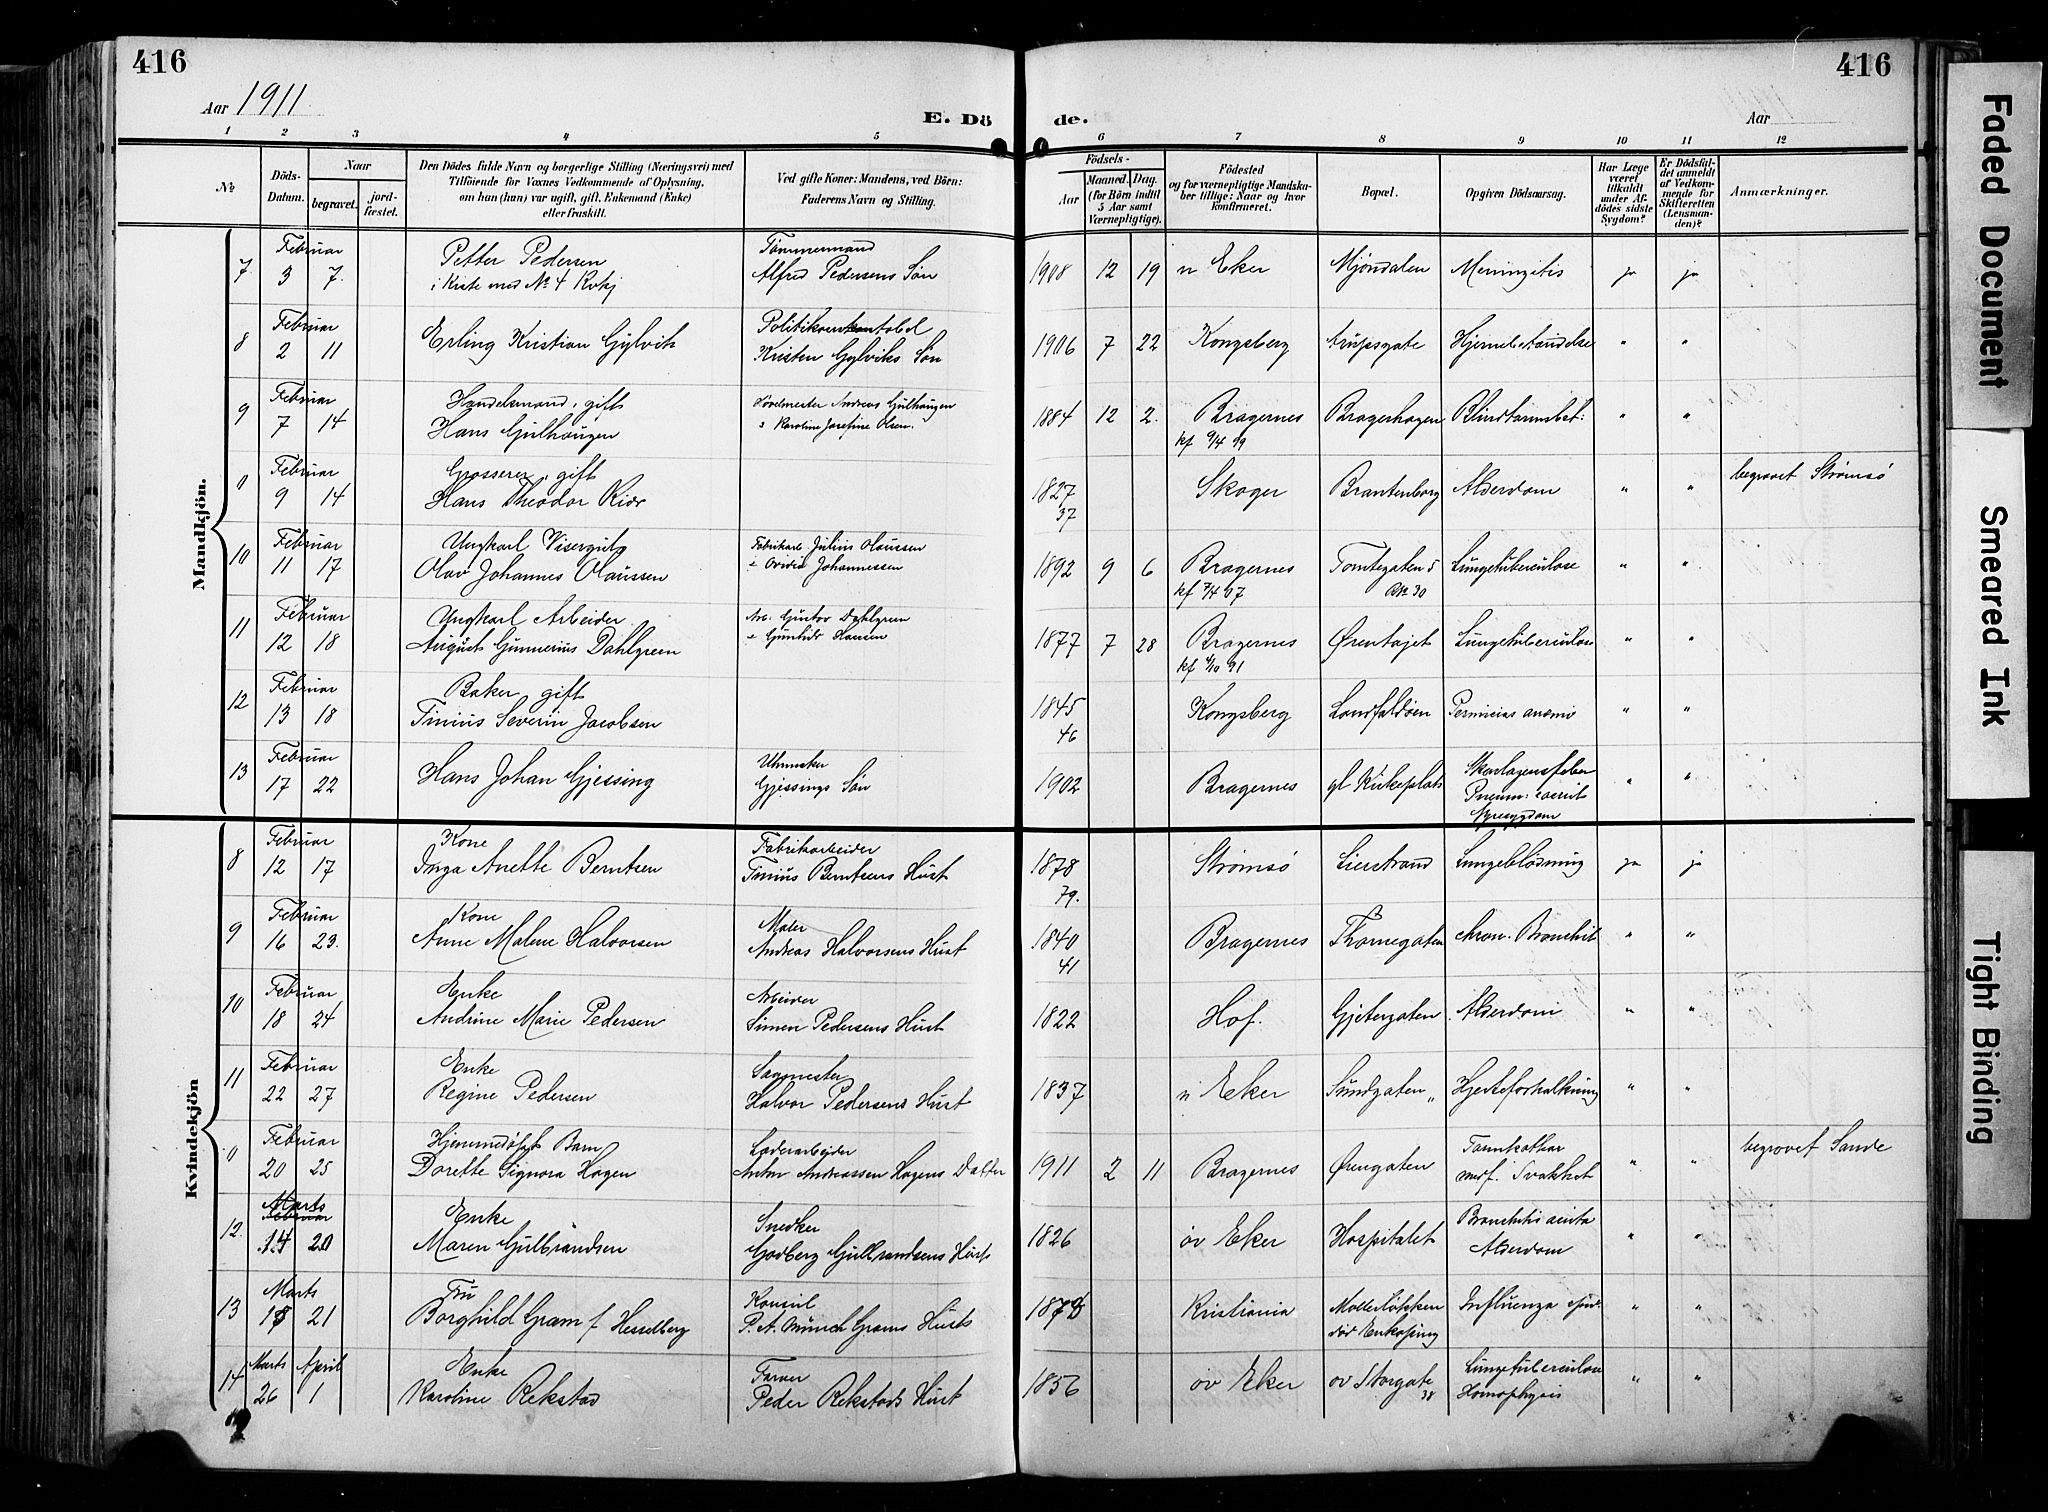 416
416
Aar 1911
E. Dö
de.
Aar
1 2 3 4 5 6 7 8 9 10 11 12
№
Döds-
Datum.
Naar
begravet.
jord-
fæstet.
Den Dödes fulde Navn og borgerlige Stilling (Næringsvei) med
Tilföiende for Voxnes Vedkommende af Oplysning,
om han (hun) var ugift, gift, Enkemand (Enke)
eller fraskilt.
Ved gifte Koner: Mandens, ved Börn:
Faderens Navn og Stilling.
Födsels-
Aar
Maaned. Dag.
(for Börn indtil
5 Aar samt
Værnepligtige).
Födested
og for værnepligtige Mandska-
ber tillige: Naar og hvor
konfirmeret.
Bopæl.
Opgiven Dödsaarsag.
Har Læge
været
tilkaldt
under Af-
dödes sidste
Sygdom?
Er Dödsfal-
det anmeldt
af Vedkom-
mende for
Skifteretten
(Lensman-
den)?
Anmærkninger.
Mandkjön.
Februar Tømmermand
7 3 7. Petter Pedersen Alfred Pedersens Søn 1908 12 19 n Eker Mjøndalen Meningitis ja ja
i Kiste med № 4 Kvkj
Februar
8 2 11 Erling Kristian Gylvik Kristen Gylviks Søn 1906 7 22 Kongsberg Hjernebetændelse " "
Februar Handelsmand, gift Andreas Gulhaugen
9 7 14 Hans Gulhaugen Karoline Josefine Olsen. 1884 12 2. Bragernes Bragerhagen Blindtarmsbet: " "
kf 9/4 99
Februar Grosserer, gift
0 9 14 Hans Theodor Kiær 1827 Skoger Brantenborg Alderdom " " begravet Strømsø
37
Februar Ungkarl Visergut Julius Olaussen
10 11 17 Olav Johannes Olaussen Johannessen 1892 9 6 Bragernes Tomtegaten 5 Lungetuberculose " "
kf 7/4 07
Februar Ungkarl Arbeider Arb. Gustav Dahlgren
11 12 18 August Gunnerius Dahlgreen Gunhild Hansen 1877 7 28 Bragernes Ørentajet Lungetuberculose " "
kf 4/10 91
Februar Baker, gift
12 13 18 Tinius Severin Jacobsen 1845 Kongsberg Landfaldøen Pernicias anæmi " "
46
Februar Uhrmaker
13 17 22 Hans Johan Gjessing Gjessings Søn 1902 Bragernes gl Kirkeplads Skarlagensfeber " "
Nyresygdom
Kvindekjön
Februar Kone Fabrikarbeider
8 12 17 Inga Anette Berntsen Tinius Berntsens Hust 1878 Strømsø Lierstrand Lungeblødning ja ja
79.
Februar Kone Maler
9 16 23. Anne Malene Halvorsen Andreas Halvorsens Hust 1840 Bragernes Thornegaten chron. Bronchit " "
41
Februar Enke Arbeider
10 18 24 Andrine Marie Pedersen Simen Pedersens Hust 1822 Hof. Gjetergaten Alderdom " "
Februar Enke Sagmester
11 22 27 Regine Pedersen Halvor Pedersens Hust 1837 n Eker Sundgaten Hjerteforkalkning " "
Februar Hjemmedøbt Barn Laderarbeider
0 20 25 Dorette Signora Hagen Anton Andreassen Hagens Datter 1911 2 11 Bragernes Ørengaten Tarmkathar " " begravet Sande
medf. Svakhet
Marts
Februar Enke Snedker
12. 14 20 Maren Gulbrandsen Godberg Gulbrandsens Hust 1826 øv Eker Hospitalet Bronchitis acuta " "
Alderdom
Marts Fru Konsul
13 18 21 Borghild Gram f Hesselberg P. A. Munch Grams Hust 1878 Kristiania Møllerløkken Influenza " "
død Enkøping
Marts April Enke Farver
14 26 1 Karoline Rekstad Peder Rekstads Hust 1856 øv Eker øv Storgate Lungetuberculose " "
38 Hæmophysis
Faded Document
Smeared Ink
Tight Binding